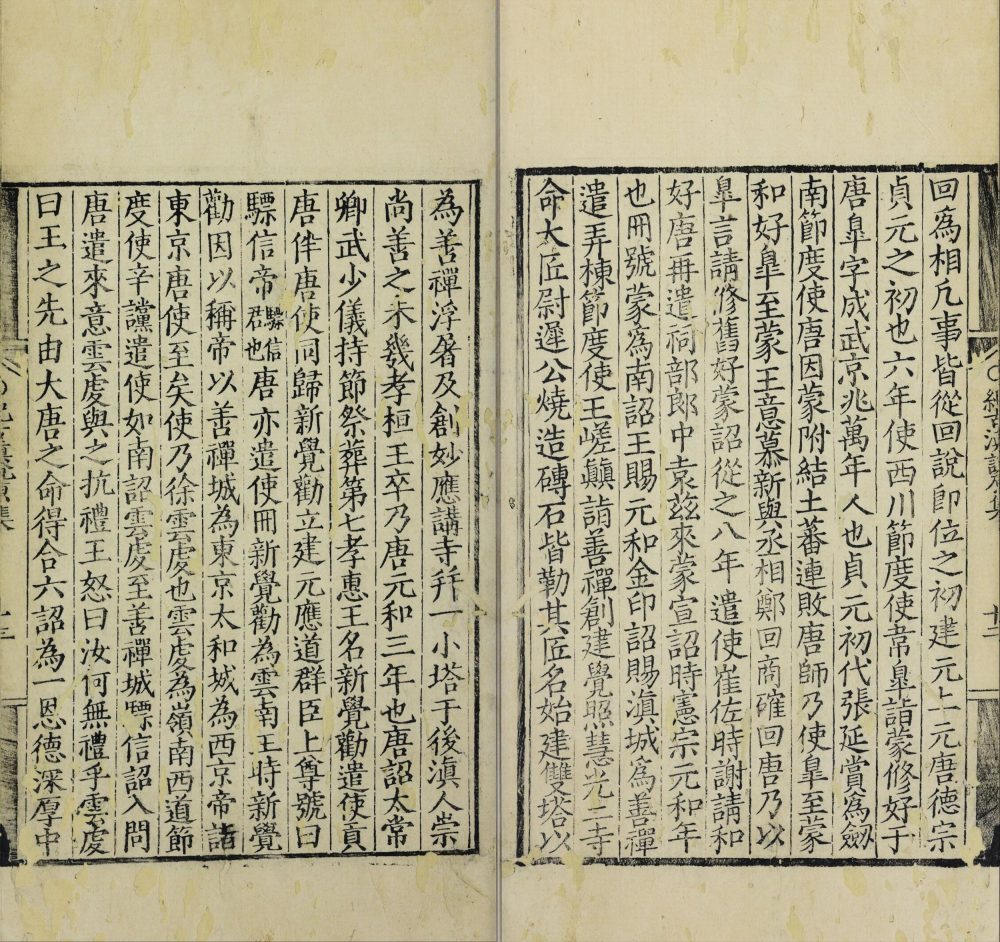 回為相凡事皆從回說即位之初建元上元唐德宗
貞元之初也六年使西川節度使韋皐詣蒙修好于
唐皐字成武京兆萬年人也貞元初代張延賞為劔
南節度使唐因蒙附結土蕃連敗唐師乃使皐至蒙
和好皐至蒙王意慕新與丞相鄭回商確回唐乃以
皐言請修舊好蒙詔從之八年遣使崔佐時謝請和
好唐再遣祠部郎中袁茲來蒙宣詔時憲宗元和年
也冊號蒙為南詔王賜元和金印詔賜滇城為善禪
遣弄棟節度使王嵯巔詣善禪創建覺照慧光二寺
命大匠尉遲公燒造磚石皆勒其匠名始建雙塔以
為善禪浮屠及創妙應講寺幷一小塔于後滇人崇
尚善之未幾孝桓王卒乃唐元和三年也唐詔太常
卿武少儀持節祭葬第七孝惠王名新覺勸遣使貢
唐伴唐使同歸新覺勸立建元應道群臣上尊號曰
驃信帝驃信群也唐亦遣使冊新覺勸為雲南王時新覺
勸因以稱帝以善禪城為東京太和城為西京帝詣
東京唐使至矣使乃徐雲虔也雲虔為嶺南西道節
度使辛讜遣使如南詔雲虔至善禪城驃信詔入問
唐遣來意雲虔與之抗禮王怒曰汝何無禮乎雲虔
曰王之先由大唐之命得合六詔為一恩德深厚中